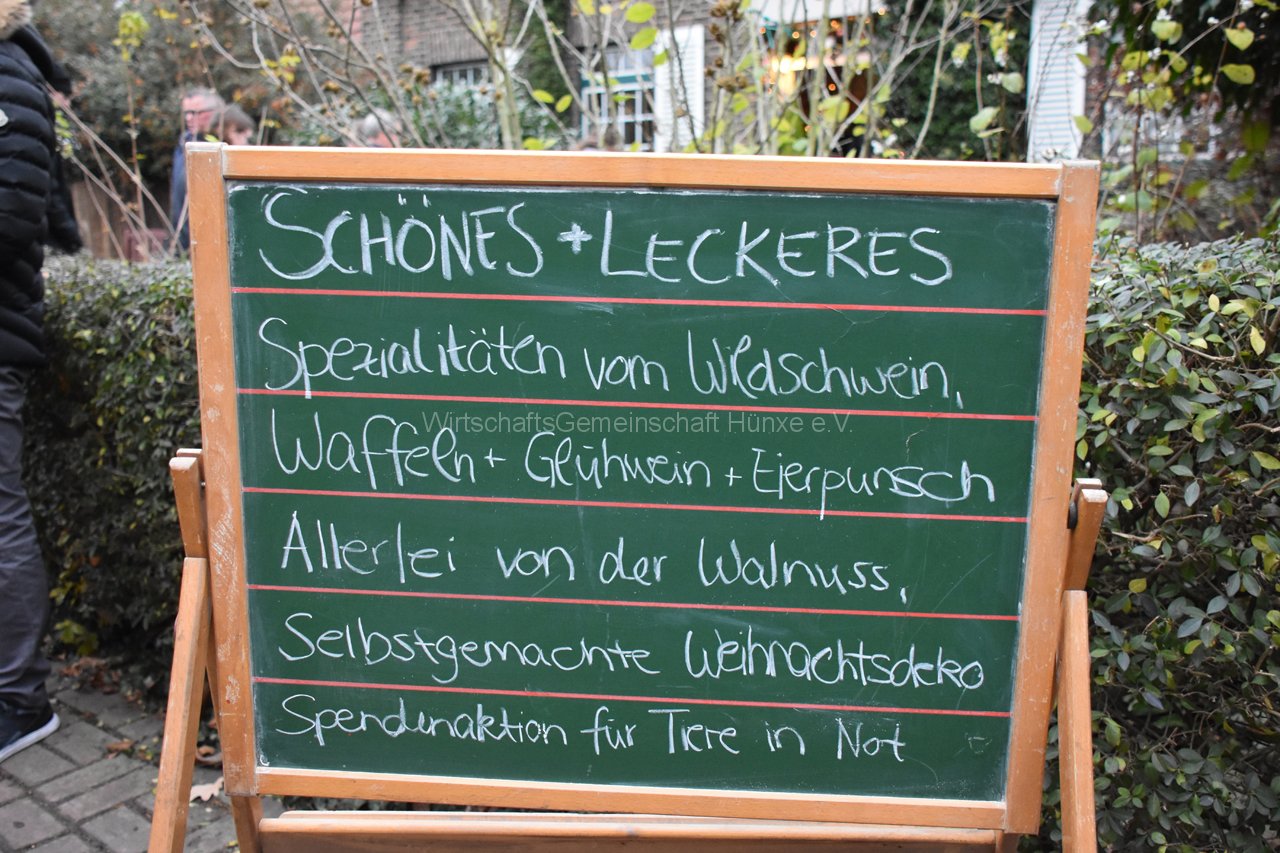 SCHÖNES + LECKERES
Spezialitäten vom Wildschwein,
WirtschaftsGemeinschaft Hünxe e.V.
Waffeln + Glühwein + Eierpunsch
Allerlei von der Walnuss,
Selbstgemachte Weihnachtsdeko
Spendenaktion für Tiere in Not